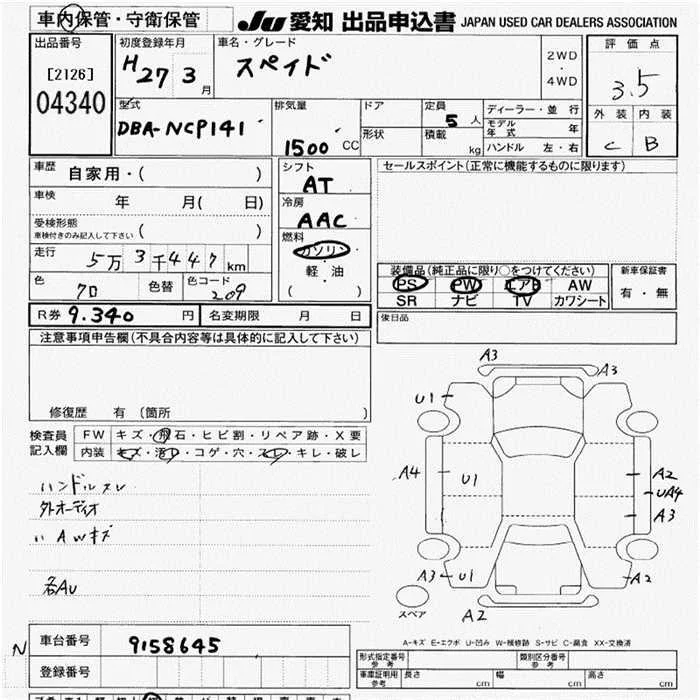 車内保管・守衛保管
JU 愛知 出品申込書 JAPAN USED CAR DEALERS ASSOCIATION
出品番号
[2126]
04340
初度登録年月
H27 3月
車名・グレード
スペイド
2WD
・
4WD
評価点
3.5
外装 内装
C B
型式
DBA-NCP141
排気量
1500 CC
ドア
形状
定員
5人
積載
kg
ディーラー・並行
モデル年式 年
ハンドル 左・右
車歴
自家用・( )
車検
年 月( 日)
受検形態
車検付きのみ記入して下さい ( )
走行
5万3千447km
色
クロ
色替
色コード
209
シフト
AT
冷房
AAC
燃料
ガソリン
・
軽・油
( )
セールスポイント(正常に機能するものに限ります)
装備品(純正品に限り○をつけてください)
PS PW エアB AW
SR ナビ TV カワシート
新車保証書
有・無
後日品
R券 9.340 円
名変期限 月 日
注意事項申告欄(不具合内容等は具体的に記入して下さい)
修復歴 有 (箇所 )
検査員
記入欄
FW キズ・飛石・ヒビ割・リペア跡・X要
内装 キズ・汚レ・コゲ・穴・スレ・キレ・破レ
ハンドルスレ
外オーディオ
〃 AWキズ
各AU
A3
A3
U1
A4
U1
A2
UA4
A3
A3
U1
A2
A2
スペア
A-キズ E-エクボ U-凹み W-補修跡 S-サビ C-腐食 XX-交換済
N
車台番号
9158645
登録番号
形式指定番号
参考
類別区分番号
参考
車庫証明用
参考
長さ cm
幅 cm
高さ cm